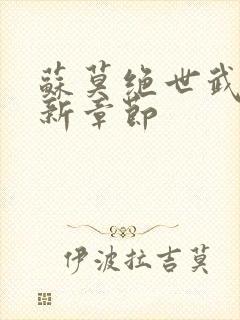 蘇莫绝世武
新章節
伊波拉吉莫